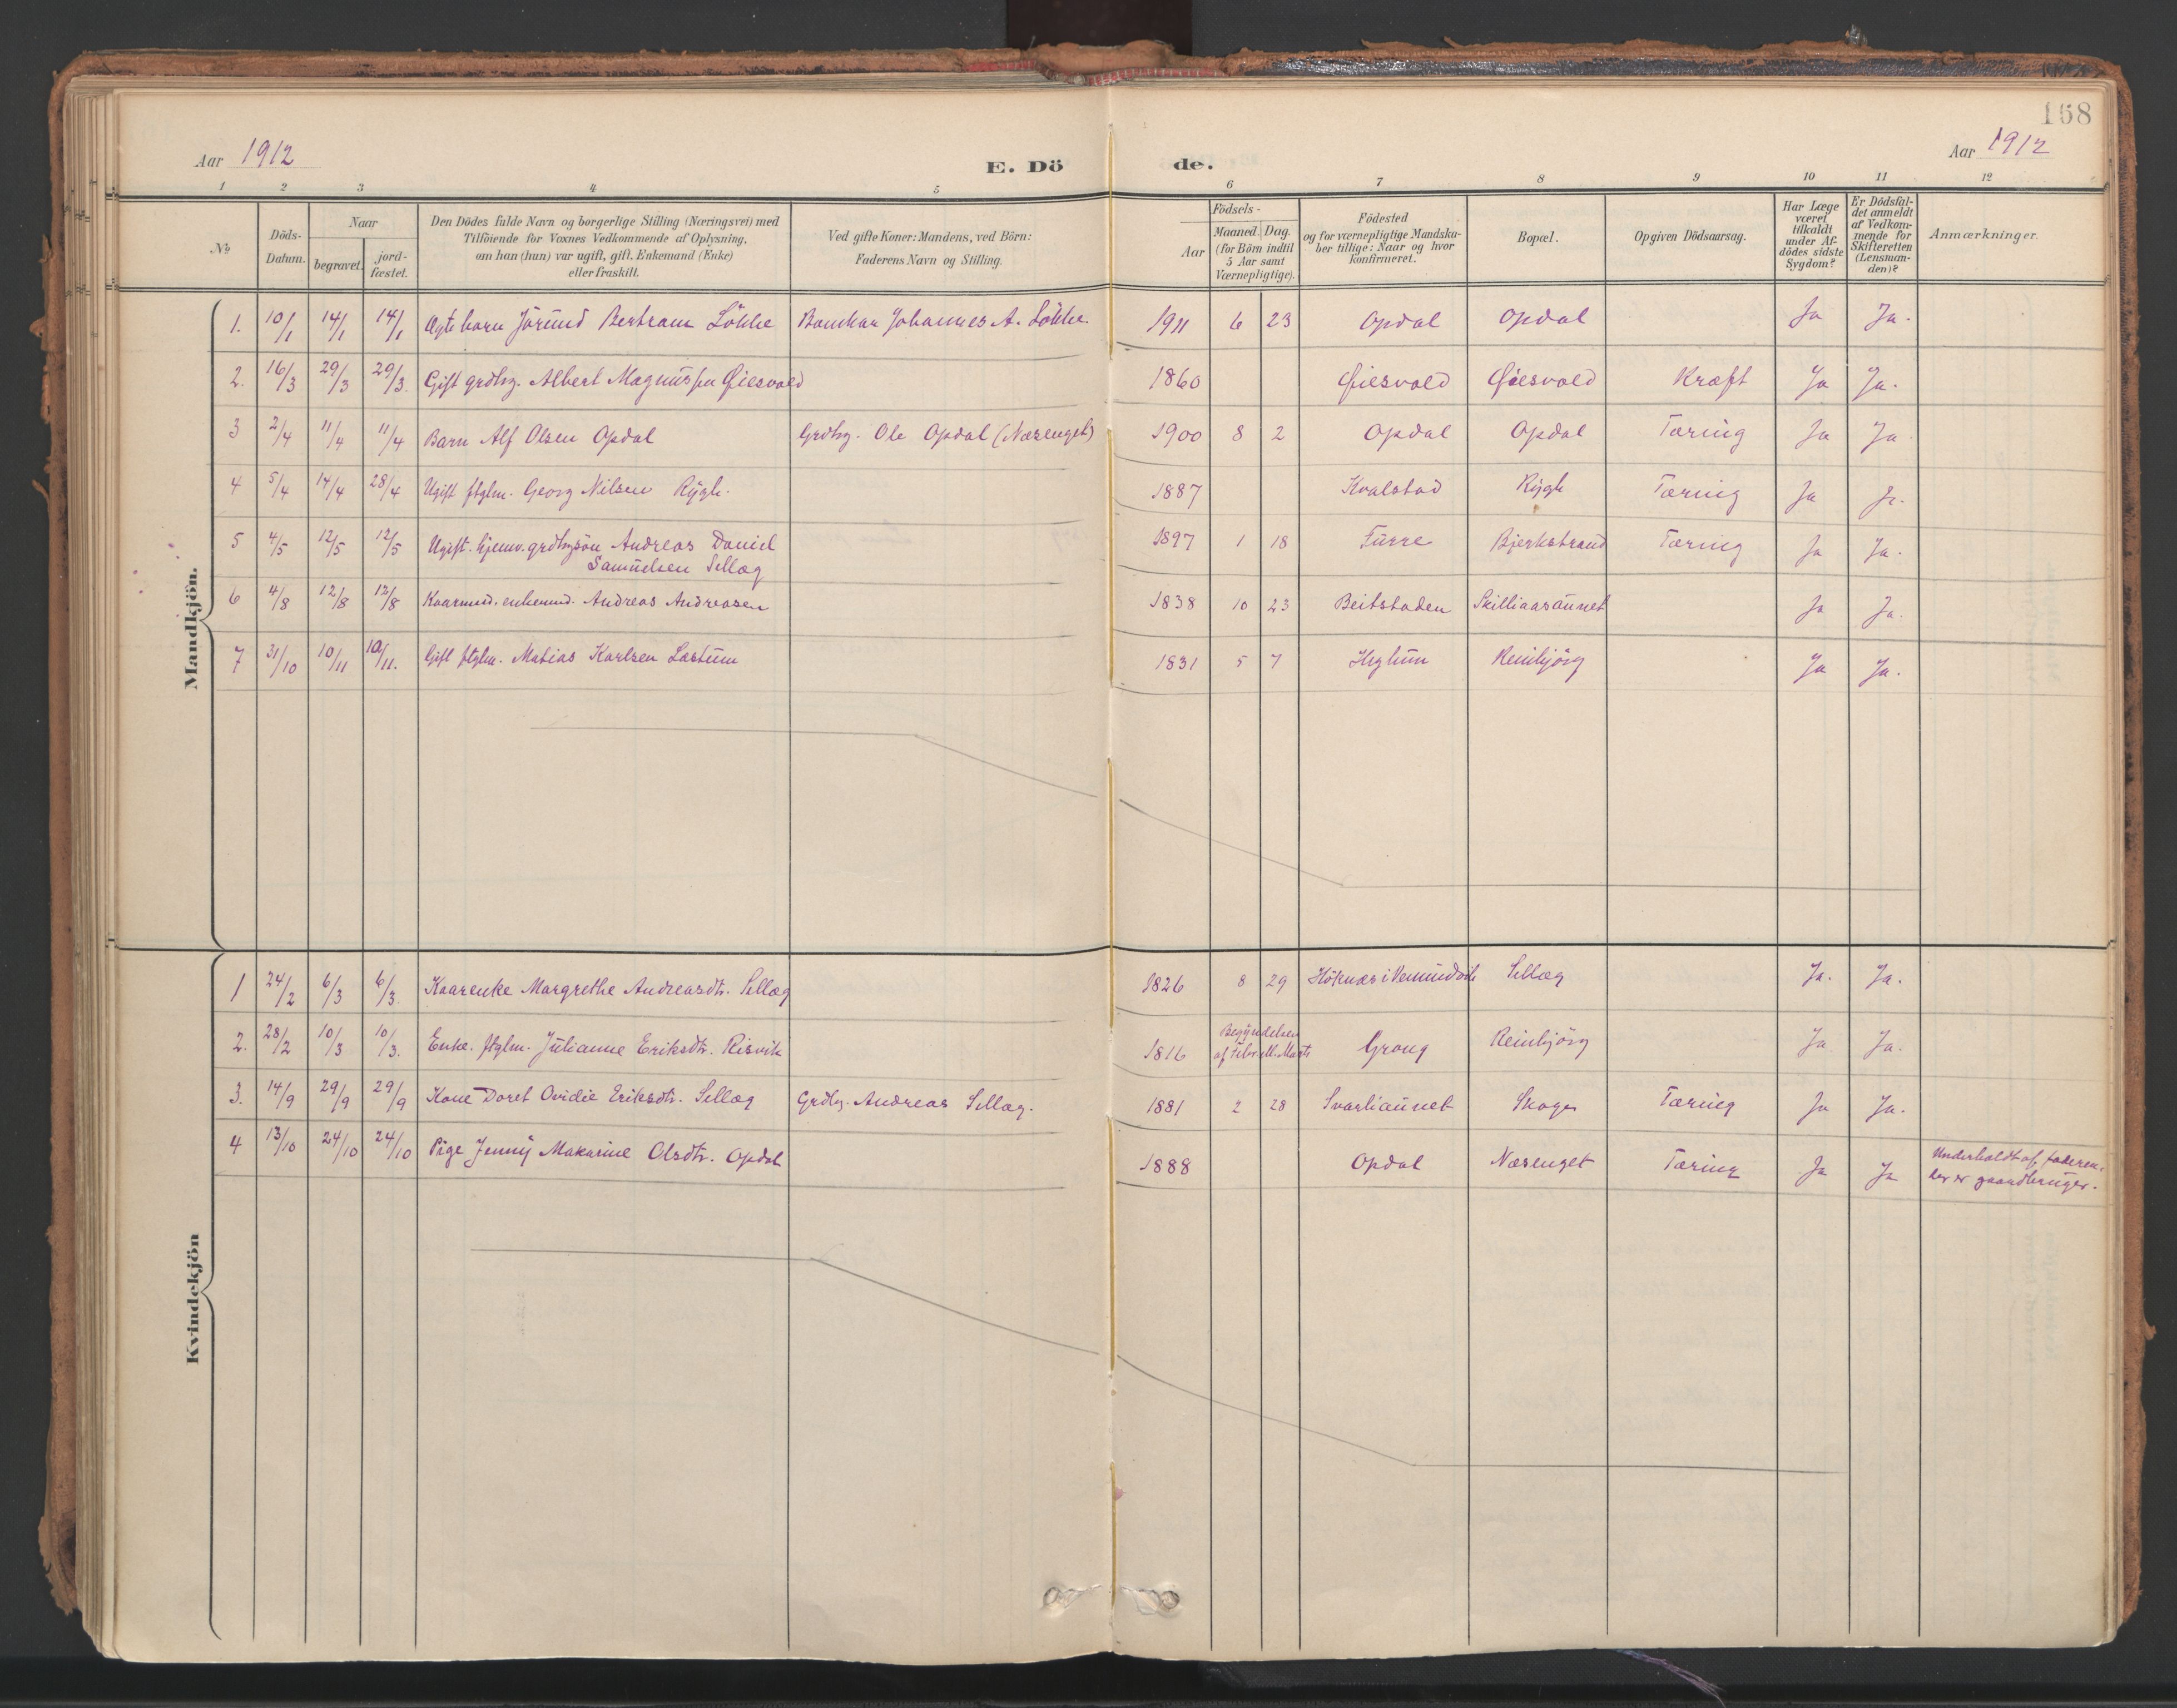 158
Aar 1912
E. Dö de.
Aar 1912
1 2 3 4 5 6 7 8 9 10 11 12
No
Döds-
Datum.
Naar
begravet.
jord-
fæstet.
Den Dödes fulde Navn og borgerlige Stilling (Næringsvei) med
Tilföiende for Voxnes Vedkommende af Oplysning,
om han (hun) var ugift, gift, Enkemand (Enke)
eller fraskilt.
Ved gifte Koner: Mandens, ved Börn:
Faderens Navn og Stilling.
Födsels-
Aar
Maaned. Dag.
(for Börn indtil
5 Aar samt
Værnepligtige).
Födested
og for værnepligtige Mandska-
ber tillige: Naar og hvor
konfirmeret.
Bopæl.
Opgiven Dödsaarsag.
Har Læge
været
tilkaldt
under Af-
dödes sidste
Sygdom?
Er Dödsfal-
det anmeldt
af Vedkom-
mende for
Skifteretten
(Lensman-
den)?
Anmærkninger.
Mandkjön.
1. 10/1 14/1 14/1 Ægte barn Jörund Bertram Lökke Johannes A. Lökke. 1911 6 23 Opdal Opdal Ja Ja.
2. 16/3 29/3 29/3. Gift grdbrg. Albert Magnussen Øiesvold 1860 Øiesvold Øiesvold Kræft Ja Ja.
3 2/4 11/4 11/4 Barn Alf Olsen Opdal Grdbrg. Ole Opdal (Næsenget) 1900 8 2 Opdal Opdal Tæring Ja Ja
4 5/4 14/4 28/4 Ugift ftglm. Georg Nilsen Rygh. 1887 Kvalstad Rygh Tæring Ja Ja.
5 4/5 12/5 12/5 Ugift. hjemv. grdbrgsön Andreas Daniel
Samuelsen Sellæg 1897 1 18 Furre Bjerkstrand Tæring Ja Ja.
6 4/8 12/8 12/8 Kaarmd. enkemd. Andreas Andreasen 1838 10 23 Beitstaden Skilliaasaunet Ja Ja.
7 31/10 10/11 10/11. Gift ftglm. Matias Karlsen Lastum 1831 5 7 Høglum Reinbjörg Ja Ja.
Kvindekjön
1 24/2 6/3 6/3. Kaarenke Margrethe Andreasdtr. Sellæg 1826 8 29 Höknæs i Vemundvik Sellæg Ja. Ja.
2. 28/2 10/3 10/3. Enke. ftglm. Julianne Eriksdtr. Risvik 1816 Begyndelsen
af Febr. ell. Marts Grong Reinbjörg Ja Ja.
3. 14/9 29/9 29/9 Kone Doret Ovidie Eriksdtr. Sellæg Grdbrg. Andreas Sellæg. 1881 2 28 Svarliaunet Skage Tæring Ja Ja.
4 13/10 24/10 24/10 Pige Jenny Makarine Olsdtr. Opdal 1888 Opdal Næsenget Tæring Ja Ja Underholdt af faderen,
der er gaardbruger.